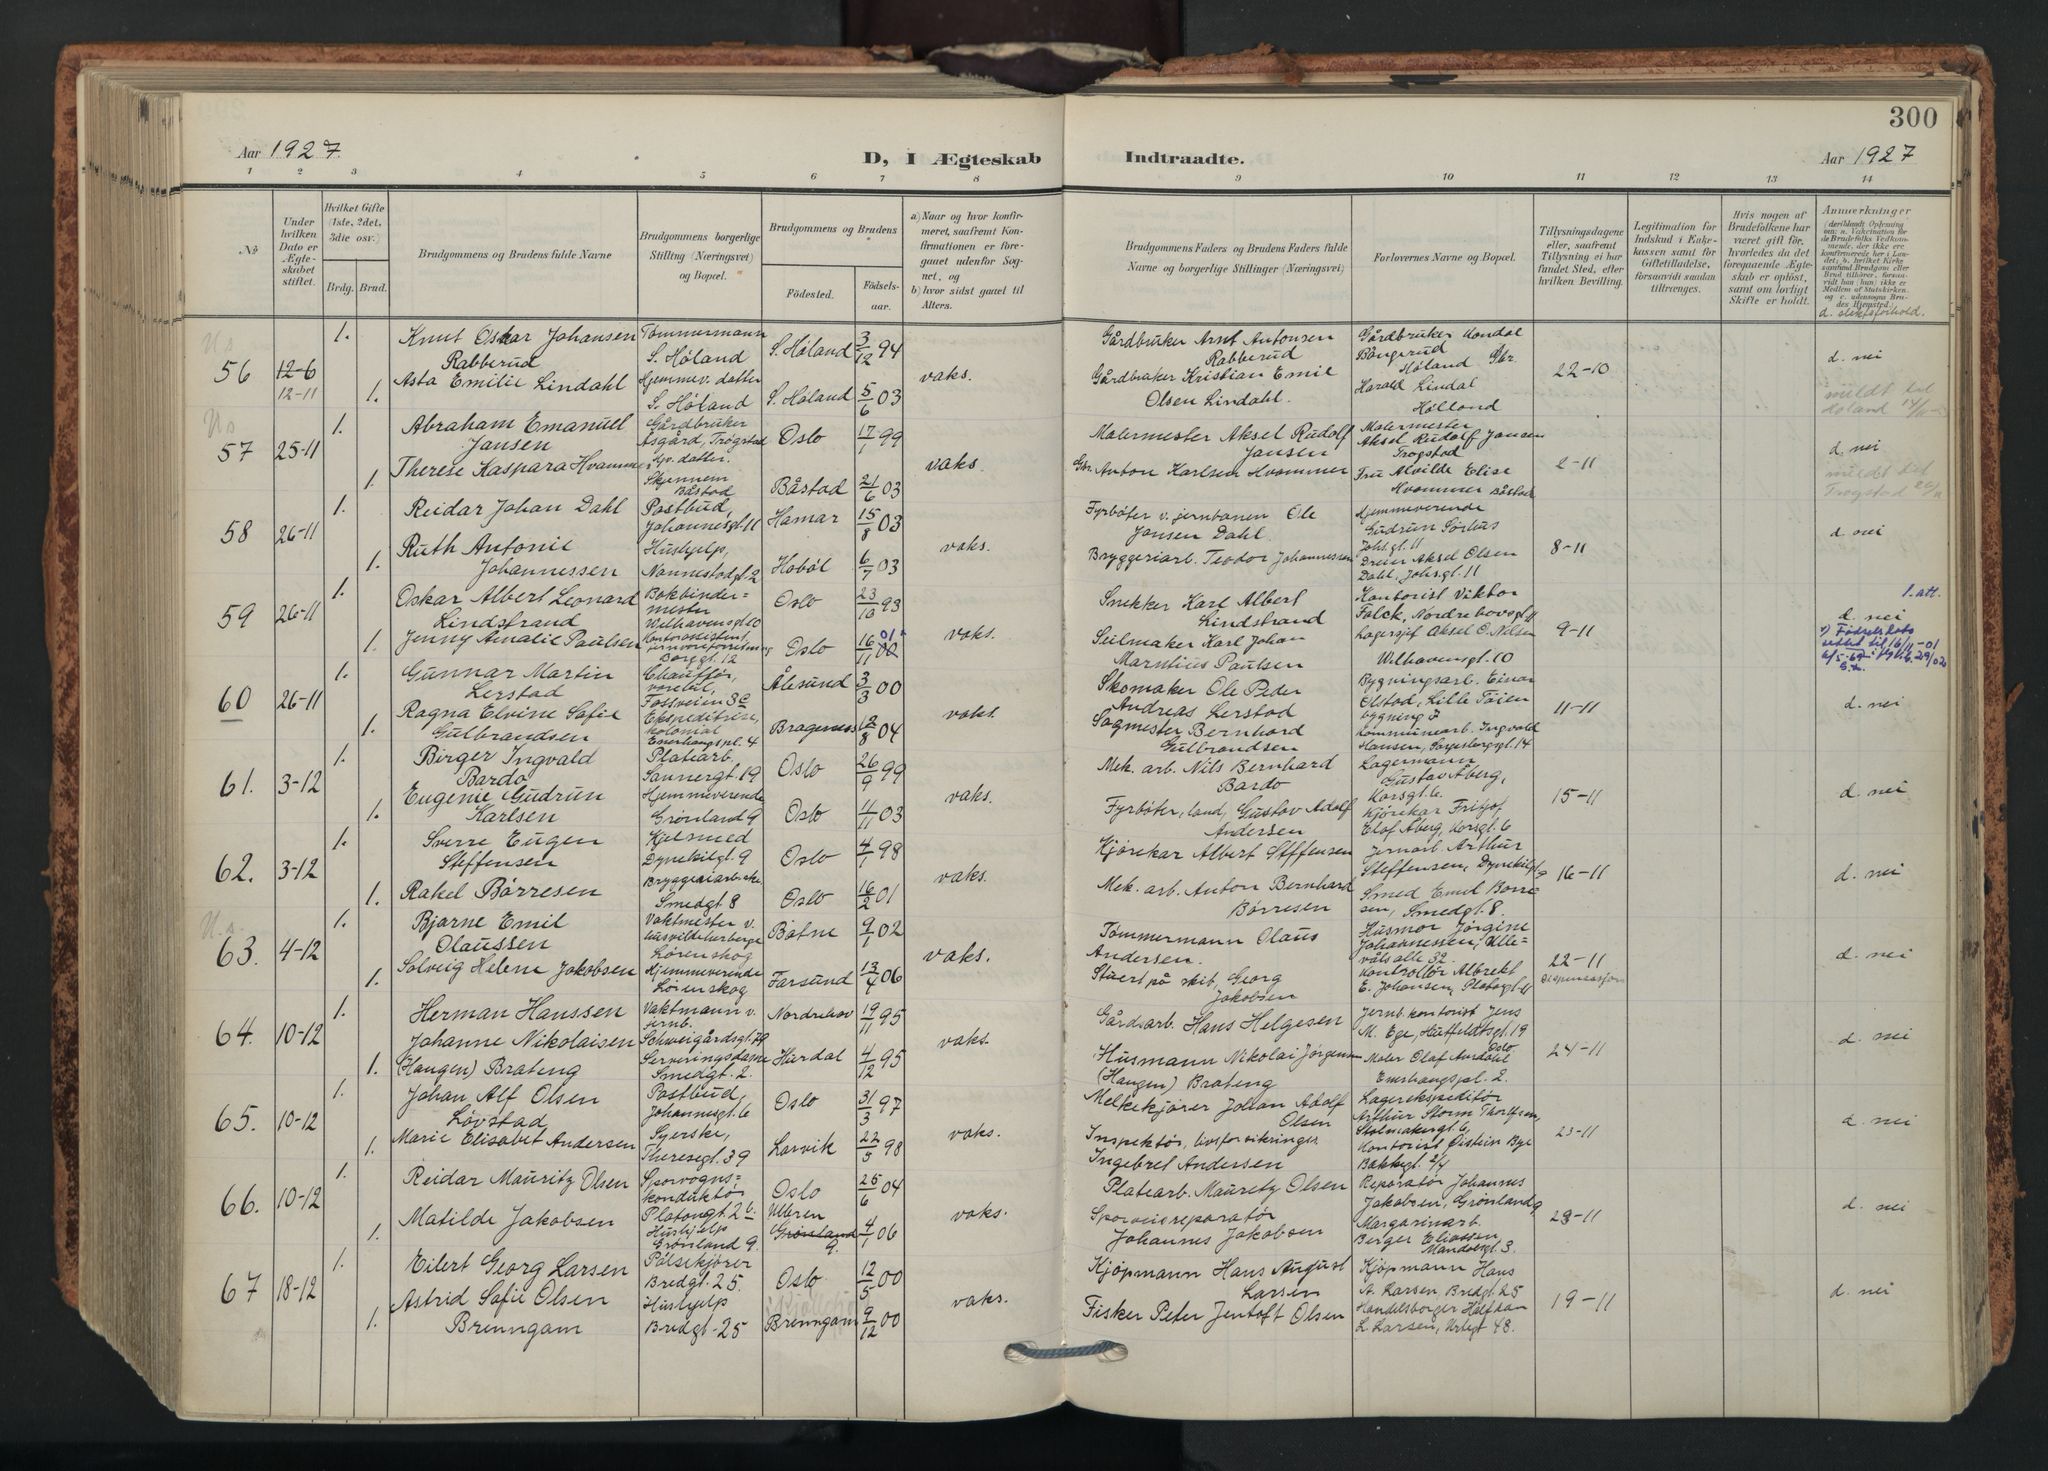 300
Aar 1927.
D, I Ægteskab
Indtraadte.
Aar 1927
1 2 3 4 5 6 7 8 9 10 11 12 13 14
No
Under hvilken Dato er Ægteskabet stiftet.
Hvilket Gifte (1ste, 2det, 3die osv.)
Brdg. Brud.
Brudgommens og Brudens fulde Navne
Brudgommens borgerlige Stilling (Næringsvei) og Bopæl.
Brudgommens og Brudens
Fødested.
Fødselsaar.
a) Naar og hvor konfirmeret, saafremt Konfirmationen er foregaaet udenfor Sognet, og
b) hvor sidst gaaet til Alters.
Brudgommens Faders og Brudens Faders fulde Navne og borgerlige Stillinger (Næringsvei)
Forlovernes Navne og Bopæl.
Tillysningsdagene eller, saafremt Tillysning ei har fundet Sted, efter hvilken Bevilling.
Legitimation for Indskud i Enkekassen samt for Giftetilladelse, forsaavidt saadan tiltrænges.
Hvis nogen af Brudefolkene har været gift før, hvorledes da det foregaaende Ægteskab er opløst, samt om lovligt Skifte er holdt.
Anmerkninger
d. slektsforhold.
U.s.
56 12-6 12-11
1. Knut Oskar Johansen Rabberud Tømmermann S. Høland S. Høland 3/12 94 vaks. Gårdbruker Arnt Antonsen Rabberud
1. Asta Emilie Lindahl Hjemmev. datter S. Høland S. Høland 5/6 03 Gårdbruker Kristian Emil Olsen Lindahl. Harald Lindal Hølland 22-10 d. nei
meldt til Høland
U.s.
57 25-11
1. Abraham Emanuel Jansen Gårdbruker Åsgård, Trøgstad Oslo 17/1 99 vaks. Malermester Aksel Rudolf Jansen Malermester Aksel Rudolf Jansen Trøgstad
1. Therese Kaspara Hvammer Gv. datter. Skjennem Båstad Båstad 21/6 03 Gbr. Anton Karlsen Hvammer Fru Alvilde Elise Hvammer Båstad 2-11 d. nei
meldt til Trøgstad
58 26-11
1. Reidar Johan Dahl Postbud, Johannesgt. 11 Hamar 15/8 03 vaks. Fyrbøter v. jernbanen Ole Jansen Dahl. Hjemmeverende Gudrun Sørhus Johs.gt. 11
1. Ruth Antonie Johannessen Hushjelp, Nannestadgt. 2 Hobøl 6/7 03 Bryggeriarb. Teodor Johannessen Dreier Aksel Olsen Dahl, Johsgt. 11 8-11 d. nei
59 26-11
1. Oskar Albert Leonard Lindstrand Bokbindermester Welhavensgt. 10 Oslo 23/10 93 vaks. Snekker Karl Albert Lindstrand Kontorist Viktor Falck, Nordre
1. Jenny Amalie Paulsen Kontoristinne, Borggt. 12 Oslo 16/11 01 Seilmaker Karl Johan Marntius Paulsen Lagersjef Aksel O. Nilsen Wilhavensgt. 10 9-11 1. att. d. nei
60 26-11
1. Gunnar Martin Lerstad Chauffør, Fossveien 3c Ålesund 3/3 00 vaks. Skomaker Ole Peder Andreas Lerstad Bygningsarb. Einar Olstad, Lille Tøien bygning 7
1. Ragna Elvine Sofie Gulbrandsen Ekspeditrise, kolonial Enerhaugspl. 4 Bragernes 12/8 04 Sagmester Bernhard Gulbrandsen Kommunearb. Ingvald Hansen, Sarpsborggt. 14 11-11 d. nei
61. 3-12
1. Birger Ingvald Bardo Platearb. Sannergt. 19 Oslo 26/9 99 vaks. Mek. arb. Nils Bernhard Bardo Lagermann Gustav Åberg, Korsgt. 6.
1. Eugenie Gudrun Karlsen Hjemmeverende Grønland 9 Oslo 11/11 03 Fyrbøter, land, Gustav Adolf Andersen Kjørekar Fritjof Olaf Åberg, Korsgt. 6 15-11 d. nei
62. 3-12
1. Sverre Eugen Steffensen Kjelsmed Dynekilgt. 9 Oslo 4/1 98 vaks. Kjørekar Albert Steffensen Jernarb. Arthur Steffensen, Dynekilgt. 9
1. Rakel Børresen Bryggeriarb.ske. Smedgt. 8 Oslo 16/2 01 Mek. arb. Anton Bernhard Børresen Smed Emil Børresen, Smedgt. 8. 16-11 d. nei
U.s.
63. 4-12
1. Bjarne Emil Olaussen Vaktmester v. Lørenskog Botne 9/1 02 vaks. Tømmermann Olaus Andersen. Husmor Jørgine Johannessen, Ullevåls alle 32.
1. Solveig Helene Jakobsen Hjemmeverende Lørenskog Farsund 13/4 06 Stuert på skib, Georg Jakobsen Kontrollør Albrekt E. Johansen, Platousgt. 11 22-11 dispensasjon d. nei
64. 10-12
1. Herman Hanssen Vaktmann v. jernb. Schweigårdsgt. 79 Nordrehov 19/11 95 vaks. Gårdsarb. Hans Helgesen Jernb. kontorist Jens M. Ege, Huitfeldtsgt. 19 Oslo
1. Johanne Nikolaisen (Haugen) Brateng Serveringsdame Smedgt. 2. Hurdal 4/12 95 Husmann Nikolai Jørgensen (Haugen) Brateng Maler Olaf Aurdahl Enerhaugspl. 2. 24-11 d. nei
65. 10-12
1. Johan Alf Olsen Løvstad Postbud, Johannesgt. 6 Oslo 31/3 97 vaks. Melkekjører Johan Adolf Olsen Lagerekspeditør Arthur Storm Thorlfsen, Stolmakergt. 6,
1. Marie Elisabet Andersen Syerske, Theresegt. 39 Larvik 22/5 98 Inspektør, livsforsikringer Ingebret Andersen Kontorist Øistein Bye Bakkegt. 2/4 23-11 d. nei
66. 10-12
1. Reidar Mauritz Olsen Sporvognskonduktør Platougt. 26 Oslo 25/6 04 vaks. Platearb. Mauritz Olsen Reparatør Johannes Jakobsen, Grønland 9
1. Matilde Jakobsen Hushjelp Grønland 9. Ullern Grønland 9. 4/1 06 Sporveisreparatør Johannes Jakobsen Margarinarb. Berger Eliassen Mandalsgt. 3. 23-11 d. nei
67 18-12
1. Eilert Georg Larsen Pølsekjører Bredgt. 25 Oslo 12/5 00 vaks. Kjøpmann Hans August Larsen Kjøpmann Hans A. Larsen, Bredgt. 25
1. Astrid Sofie Olsen Brenngam Hushjelp Bredgt. 25 Brenngam 9/12 00 Fisker Peter Jentoft Olsen Handelsborger Halfdan L. Larsen, Urtegt 48. 19-11 d. nei